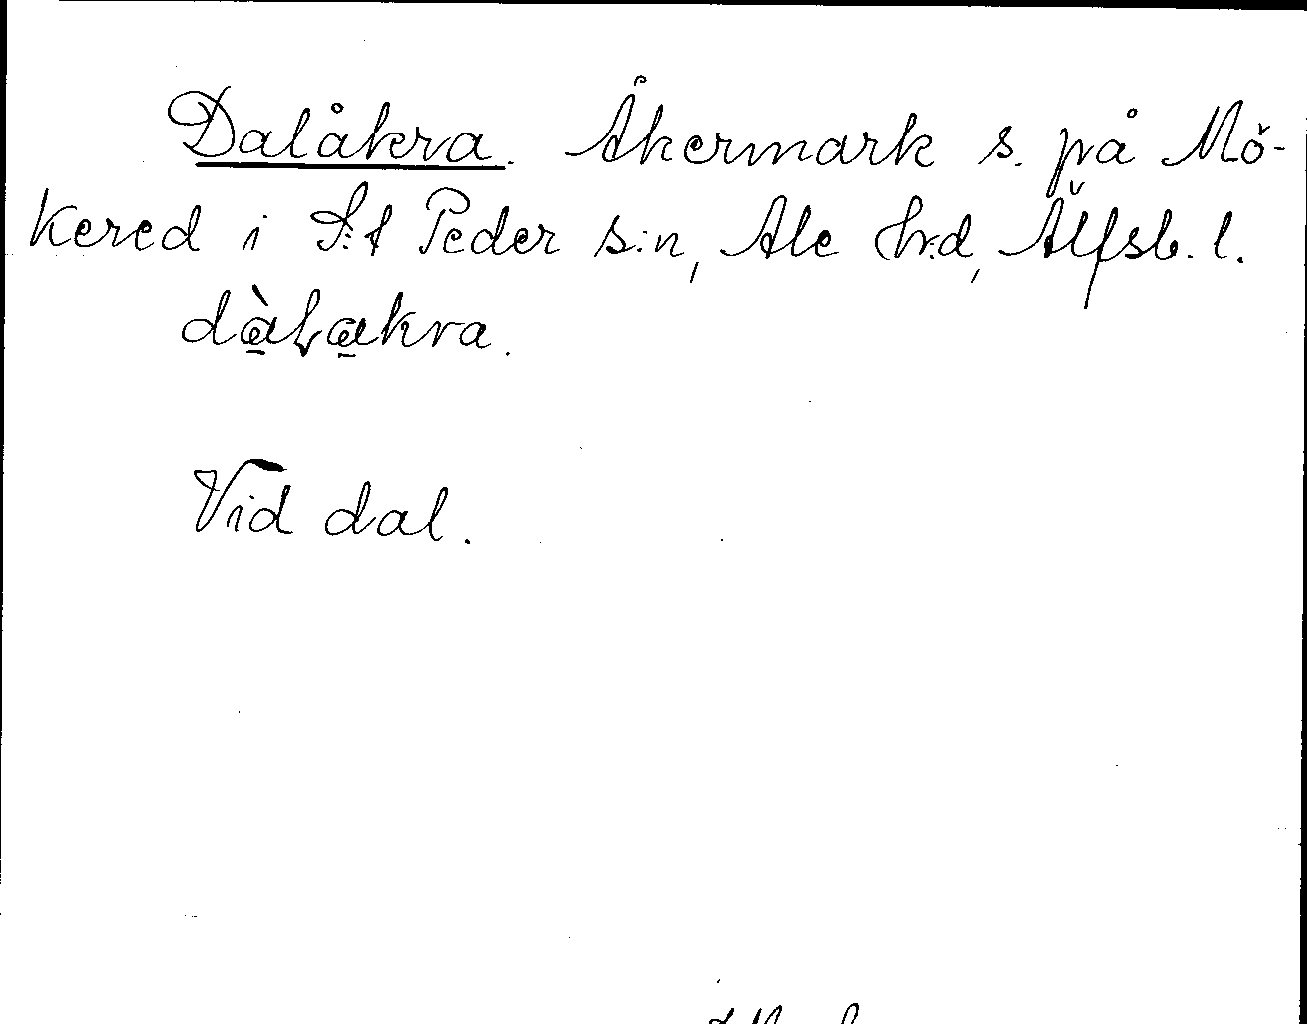 Dalåkra. Åkermark s. på Mö-
kered i S:t Peder s:n, Ale hrd, Älfsb. l.
dàlakra.
Vid dal.